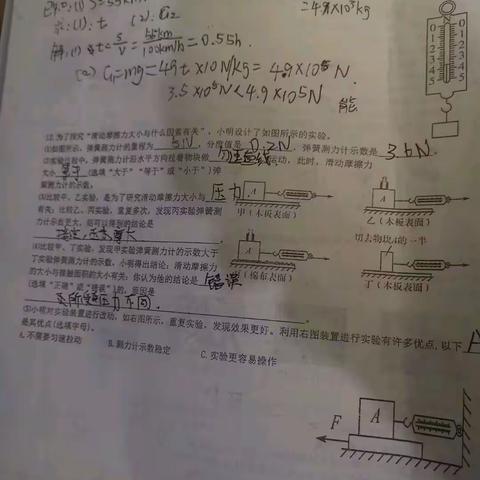 求:(1):t (2):G2
解:(1)t=s/v=55km/100km/h=0.55h.
(2)G=mg=49t×10N/kg=4.9×10⁵N.
3.5×10⁵N<4.9×10⁵N
能
=4.9×10⁴kg
12.为了探究“滑动摩擦力大小与什么因素有关”,小明设计了如图所示的实验。
(1)如图所示,弹簧测力计的量程为 5N ,分度值是 0.2N ,弹簧测力计示数是 3.6N.
(2)实验过程中,弹簧测力计沿水平方向拉着物块做 匀速直线 运动,此时,滑动摩擦力
大小 等于 (选填“大于”“等于”或“小于”)弹
簧测力计的示数;
(3)比较甲、乙实验,是为了研究滑动摩擦力大小与 压力
有关;比较乙、丙实验,重复多次,发现丙实验弹簧测
力计示数更大,则可以得到的结论是
(4)比较甲、丁实验,发现甲实验弹簧测力计的示数大于
丁实验弹簧测力计的示数,小明得出结论:滑动摩擦力
的大小与接触面积的大小有关;你认为他的结论是 错误
(选填“正确”或“错误”),原因是
压力不同.
甲(木板表面)
乙(木板表面)
切去物块A的一半
丙(棉布表面)
丁(木板表面)
(5)小明对实验装置进行改动,如右图所示,重复实验,发现效果更好。利用右图装置进行实验有许多优点,以下 A
是其优点(选填字母)。
A.不需要匀速拉动 B.测力计示数稳定 C.实验更容易操作
F A